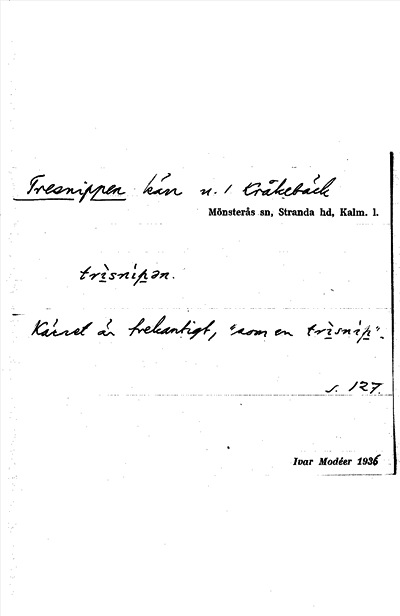 Tresnippen kärr n. / Kråkebäck
Mönsterås sn, Stranda hd, Kalm. l.
trìsnípən.
Kärret är trekantigt, "som en trìsníp".
s. 127.
Ivar Modéer 1936